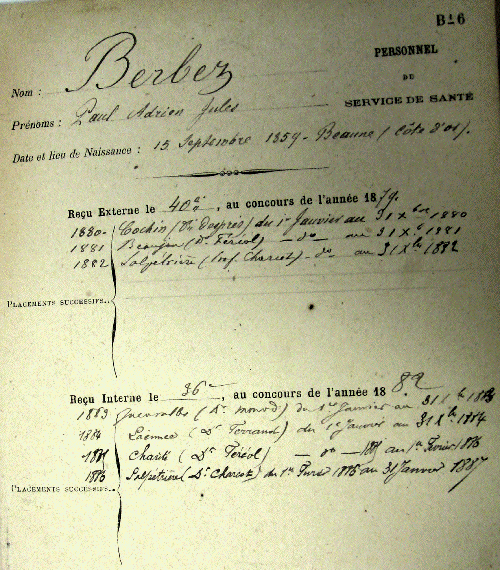 B-16
PERSONNEL
DU
SERVICE DE SANTÉ
Nom : Berbez
Prénoms : Paul Adrien Jules
Date et lieu de Naissance : 15 Septembre 1859 - Beaune (Côte d'or).
Reçu Externe le 40e, au concours de l'année 1879.
1880 - Cochin (Dr Després) du 1er Janvier au 31 Xbre 1880
1881 Beaujon (Dr Féréol) - do - au 31 Xe 1881
1882 Salpêtrière (Prof Charcot) - do - au 31 Xbre 1882
PLACEMENTS SUCCESSIFS..
Reçu Interne le 36e, au concours de l'année 1882
1883 (Dr Monod) du 1er Janvier au 31 Xbre
1884 Laënnec (Dr Ferrand) du 1er Janvier au 31 Xbre 1884
1885 Charité (Dr Féréol) - do - au 1er Février 1886
1886 Salpêtrière (Dr Charcot) du 1er 1886 au 31 Janvier 1887
PLACEMENTS SUCCESSIFS..